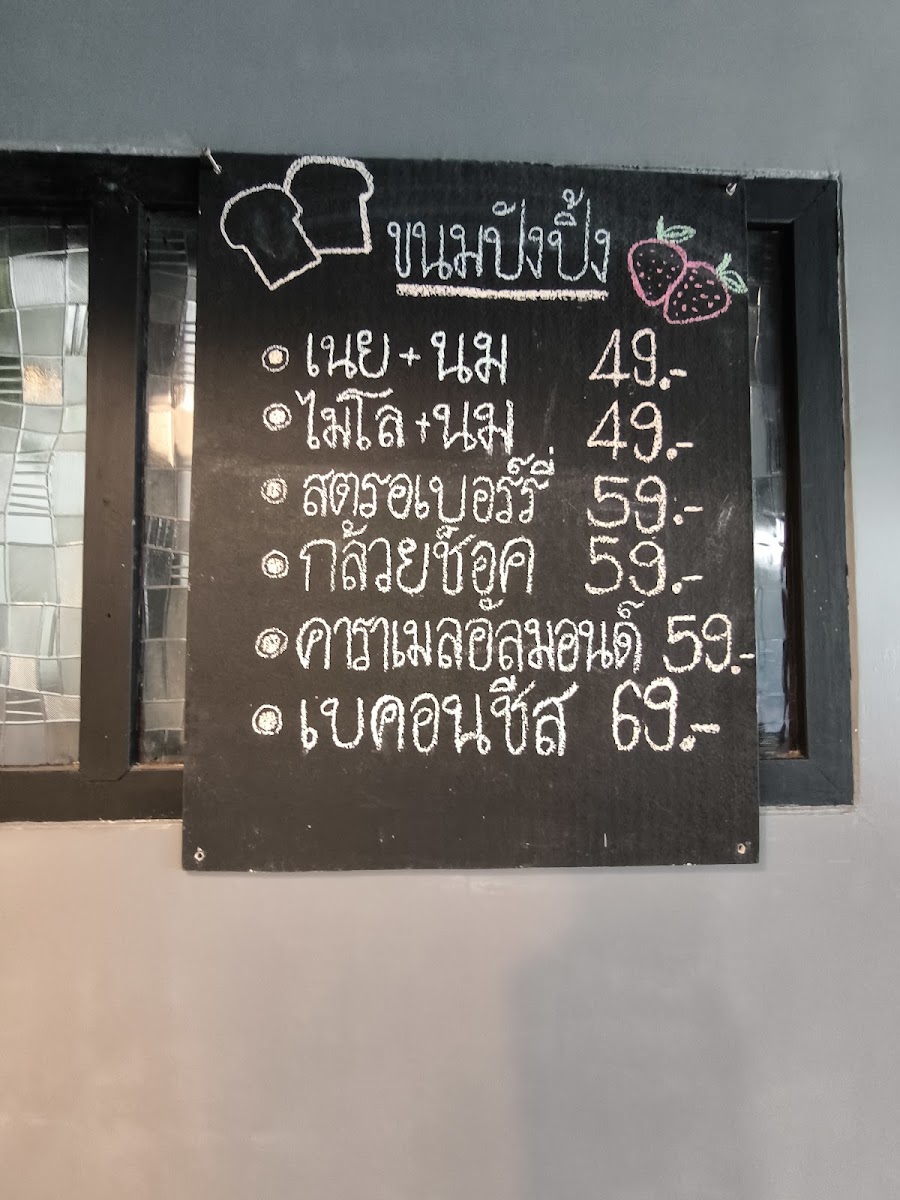 ขนมปังปิ้ง
เนย+นม 49.-
ไมโล+นม 49.-
สตรอเบอร์รี่ 59.-
กล้วยช็อค 59.-
คาราเมลอัลมอนด์ 59.-
เบคอนชีส 69.-